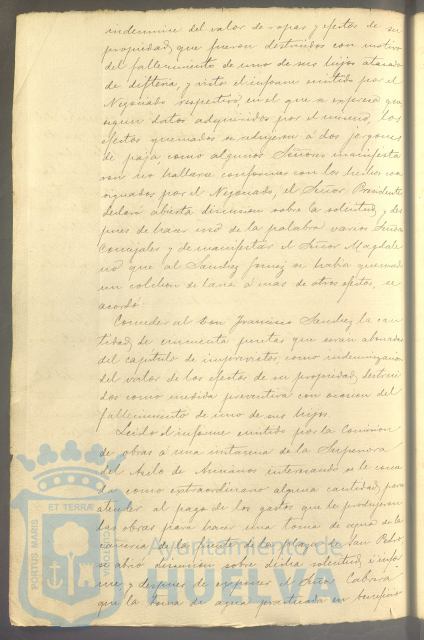 indemnice del valor de ropas y efectos de su
propiedad, que fueron destruidos con motivo
del fallecimiento de uno de sus hijos atacado
de difteria, y visto el informe emitido por el
Negociado respectivo, en el que se expresa que
segun datos adquiridos por el mismo, los
efectos quemados se redujeron á dos jergones
de paja, como algunos Señores manifesta
ran no hallarse conformes con los hechos con
signados por el Negociado, el Señor Presidente
declaró abierta discusion sobre la solicitud, y des
pues de hacer uso de la palabra varios Señores
Concejales y de manifestar el Señor Magdale
no que al Sanchez Gomez se habia quemado
un colchon de lana á mas de otros efectos, se
acordó:
Conceder al Don Francisco Sanchez la can
tidad de cincuenta pesetas que seran abonadas
del capitulo de imprevistos como indemnizacion
del valor de los efectos de su propiedad, destrui
dos como medida preventiva con ocasion del
fallecimiento de uno de sus hijos.
Leido el informe emitido por la Comision
de obras á una instancia de la Superiora
del Asilo de Ancianos interesando se le conce
da como extraordinario alguna cantidad, para
atender al pago de los gastos que le produzcan
las obras para hacer una toma de agua de la
cañeria de la fuente de la plaza de San Pedro,
se abrió discusion sobre dicha solicitud é infor
me, y despues de exponer el Señor Cabrera
que la toma de agua practicada en beneficio
PORTUS MARIS ET TERRAE CUSTODIA
Ayuntamiento de
HUELVA